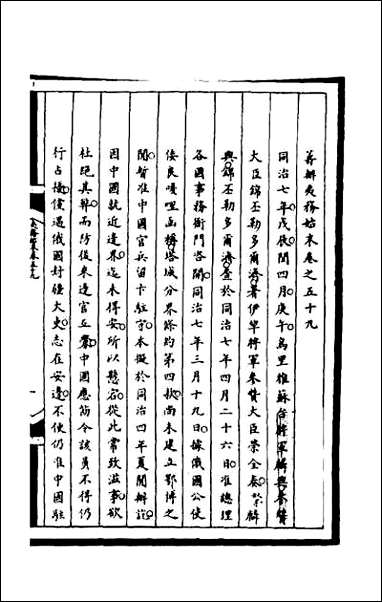 籌辦夷務始末卷之五十九
同治七年戊辰閏四月庚午烏里雅蘇台將軍麟興參贊
大臣錦丕勒多爾濟署伊犂將軍參贊大臣榮全奏麟
興錦丕勒多爾濟等於同治七年四月二十六日准總理
各國事務衙門咨開同治七年三月十九日據俄國公使
倭良嘎哩函稱塔城分界條約第四款尚未建立鄂博之
間暫准中國官兵留卡駐守本擬於同治四年夏間辦證
因中國就近邊界迄未得安所以懸宕從此常致滋事欲
杜絕其弊而防後來邊官丘釁中國應飭令該員不得仍
行占擾儻遇俄國好疆大吏志在安邊不使仍准中國駐
夷務始末卷五十九
一